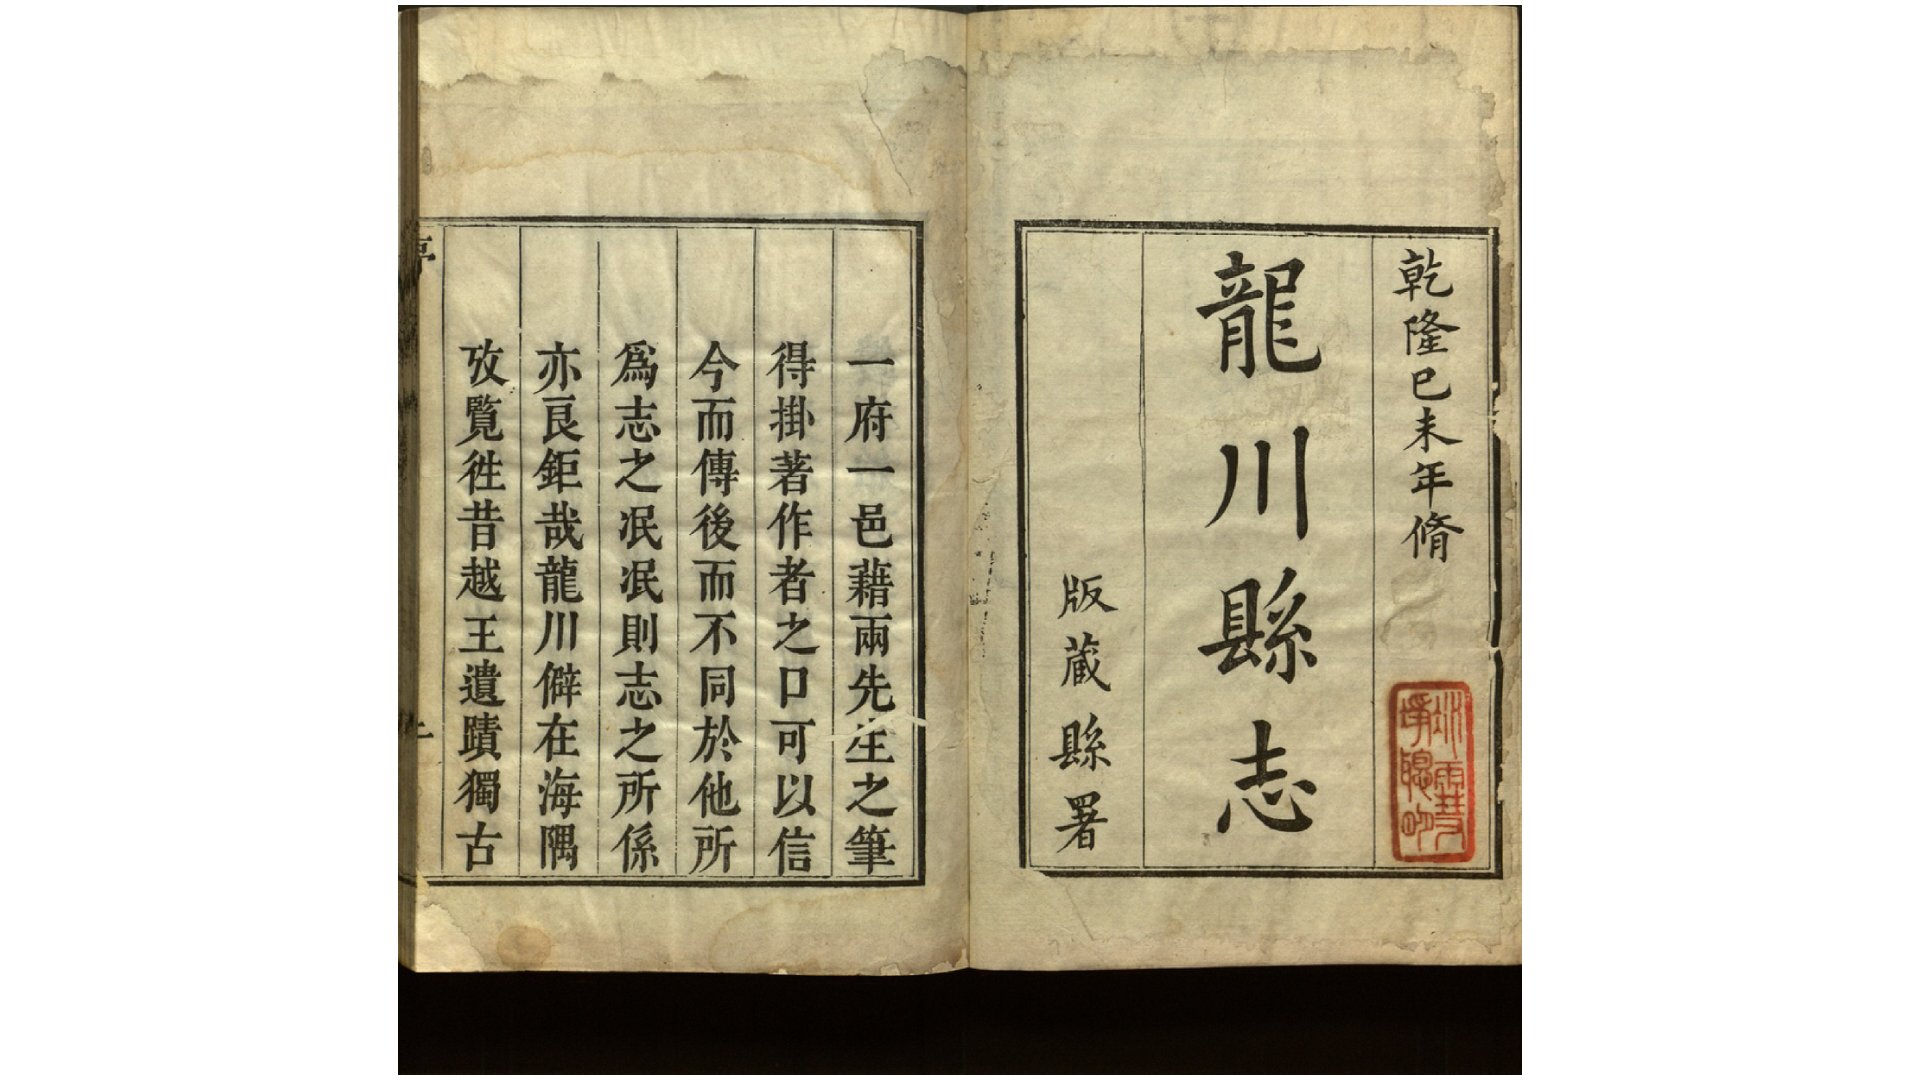 乾隆己未年脩
龍川縣志
版蔵縣署
一府一邑藉兩先生之筆
得掛著作者之口可以信
今而傳後而不同於他所
爲志之泯泯則志之所係
亦良鉅哉龍川僻在海隅
攷覽徃昔越王遺蹟獨古